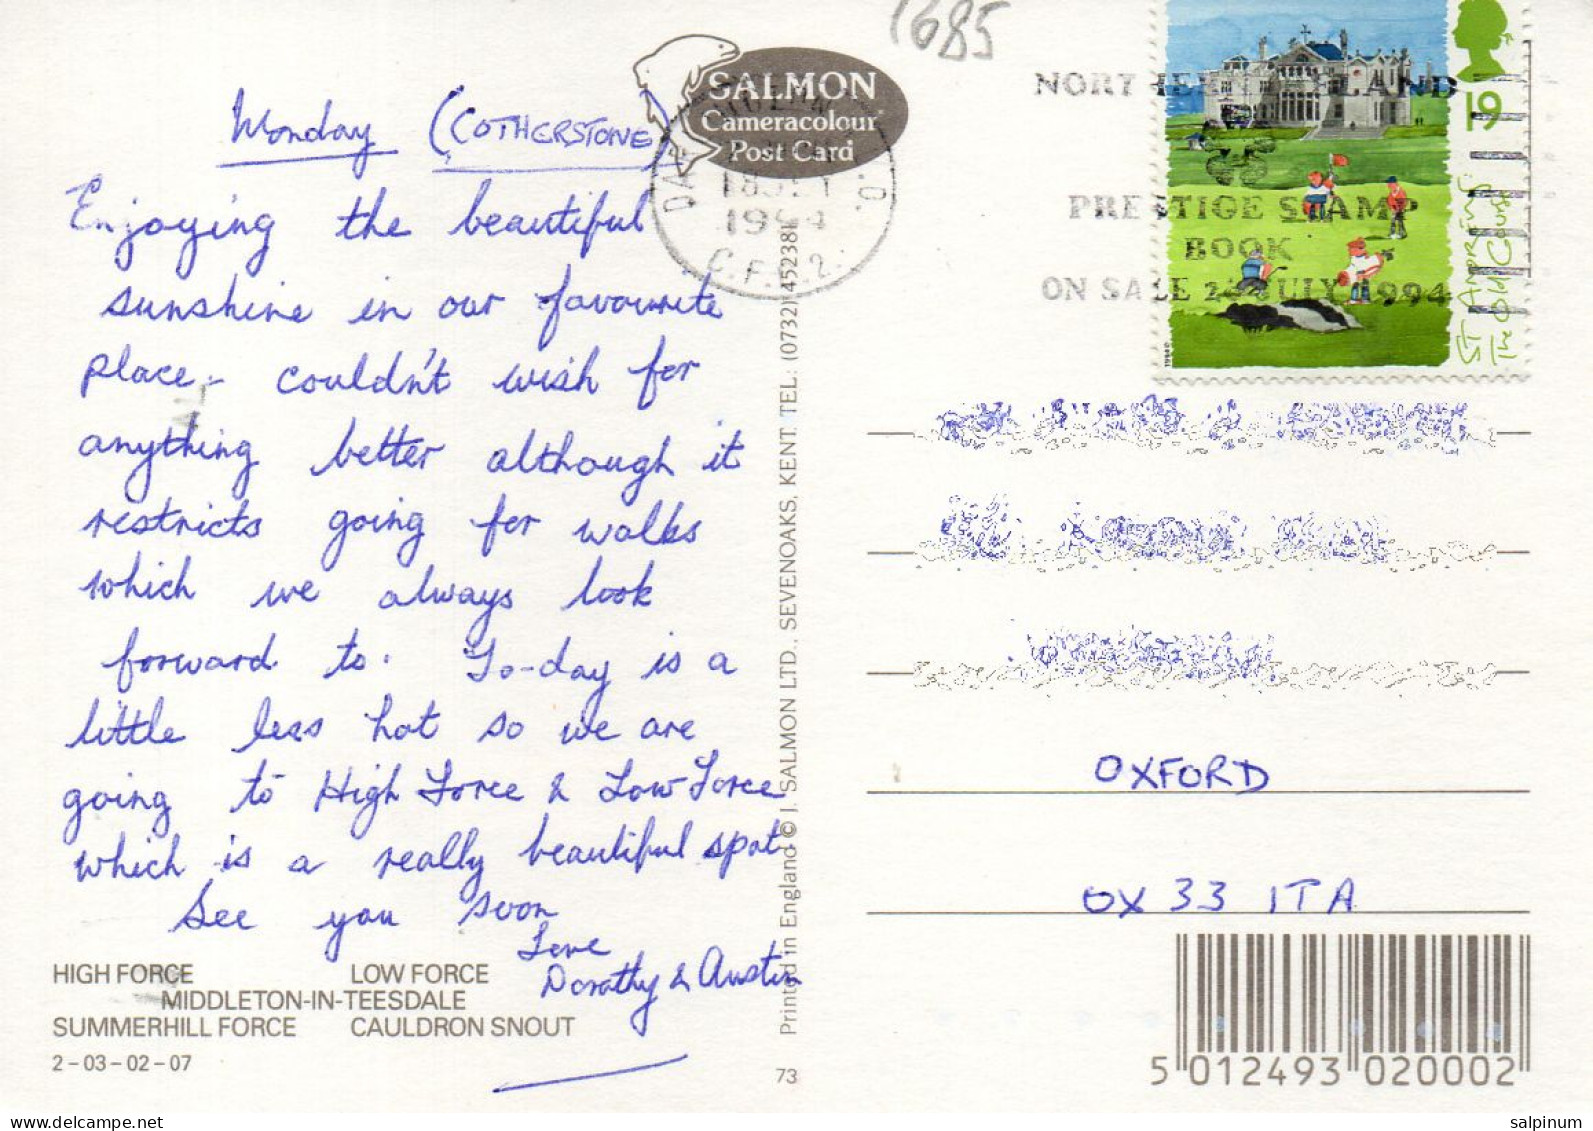 1685
SALMON
Cameracolour
Post Card
Monday (COTHERSTONE)
Enjoying the beautiful
sunshine in our favourite
place - couldn't wish for
anything better although it
restricts going for walks
which we always look
forward to. To-day is a
little less hot so we are
going to High Force & Low Force
which is a really beautiful spot
See you soon
Love
Dorothy & Austin
HIGH FORCE LOW FORCE
MIDDLETON-IN-TEESDALE
SUMMERHILL FORCE CAULDRON SNOUT
2-03-02-07
Printed in England © J. SALMON LTD., SEVENOAKS, KENT. TEL: (0732) 452381
73
1994
PRESTIGE STAMP
BOOK
ON SALE 26 JULY 1994
19
ST ANDREWS
The Old Course
OXFORD
OX 33 1TA
5 012493 020002
salpinum